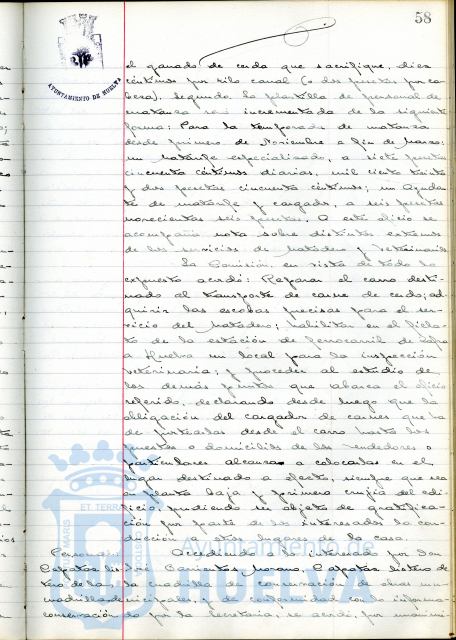 58
AYUNTAMIENTO DE HUELVA
el ganado de cerda que sacrifique, diez
céntimos por kilo canal (o dos pesetas por ca-
beza). Segundo la plantilla de personal de
matanza será incrementada de la siguiente
forma: Para la temporada de matanza
desde primero de Noviembre a fin de Marzo:
un matarife especializado, a siete pesetas
cincuenta céntimos diarias, mil ciento treinta
y dos pesetas cincuenta céntimos; un Ayudan-
te de matarife y cargador, a seis pesetas
novecientas seis pesetas. A este oficio se
acompaña nota sobre distintos extremos
de los servicios de Matadero y Veterinarios
La Comisión, en vista de todo lo
expuesto acordó: Reparar el carro desti-
nado al transporte de carne de cerdo; ad-
quirir las escobas precisas para el ser-
vicio del Matadero; habilitar en el fiela-
to de la estación de ferrocarril de Zafra
a Huelva un local para la inspección
veterinaria; y proceder al estudio de
los demás puntos que abarca el oficio
referido, declarando desde luego que la
obligación del cargador de carnes que ha
de portearlas desde el carro hasta los
puestos o domicilios de los vendedores o
particulares alcanza a colocarlas en el
lugar destinado a efecto, siempre que sea
en planta baja y primera crujía del edi-
ficio, pudiendo ser objeto de gratifica-
ción por parte de los interesados la con-
ducción a otros lugares de la casa.
Personal Accediendo a lo interesado por Don
Capataz lis- José Barrientos Morano, Capataz listero de
tero de la la cuadrilla de conservación de obras mu-
cuadrilla de nicipales, y de conformidad con lo informa-
conservación do por la Secretaría, se acordó, por unanimi-
ET TERRA
MARIS
Ayuntamiento de
HUELVA